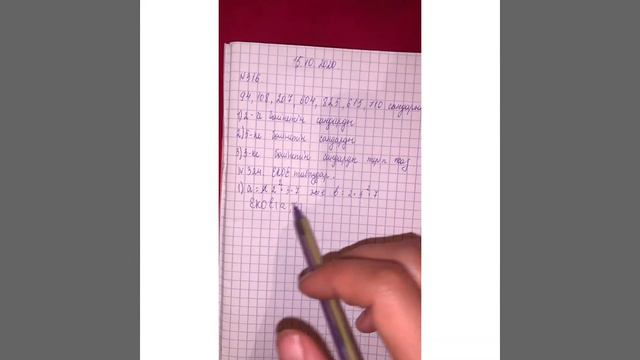 15.10.2020
№316.
94, 108, 207, 604, 825, 615, 710 сандарын
1) 2-ге бөлінетін сандарды
2) 5-ке бөлінетін сандарды
3) 3-ке бөлінетін сандарды теріп жаз
№324. ЕКОЕ табыңдар.
1) a = 2² · 3 · 7 және b = 2 · 3² · 7
ЕКОЕ(a